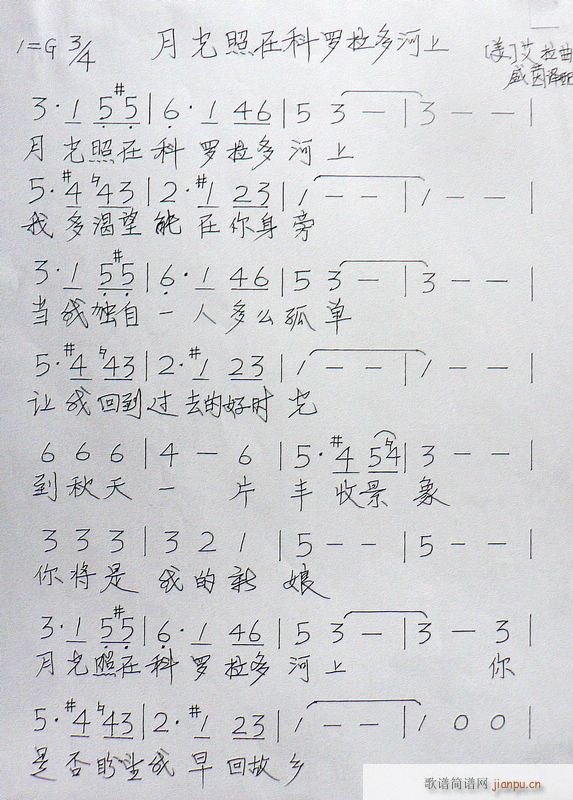 1=G 3/4 月光照在科罗拉多河上 [美]艾拉曲
盛茵译配
3· 1 5 #5 | 6· 1 46 | 5 3 — | 3 — — |
月光照在科罗拉多河上
5· #4 ♮43 | 2· #1 23 | 1 — — | 1 — — |
我多渴望能在你身旁
3· 1 5 #5 | 6· 1 46 | 5 3 — | 3 — — |
当我独自一人多么孤单
5· #4 ♮43 | 2· #1 23 | 1 — — | 1 — — |
让我回到过去的好时光
6 6 6 | 4 — 6 | 5· #4 5♮4 | 3 — — |
到秋天一片丰收景象
3 3 3 | 3 2 1 | 5 — — | 5 — — |
你将是我的新娘
3· 1 5 #5 | 6· 1 46 | 5 3 — | 3 — 3 |
月光照在科罗拉多河上 你
5· #4 43 | 2· #1 23 | 1 — — | 1 0 0 |
是否盼望我早回故乡
歌谱简谱网 jianpu.cn